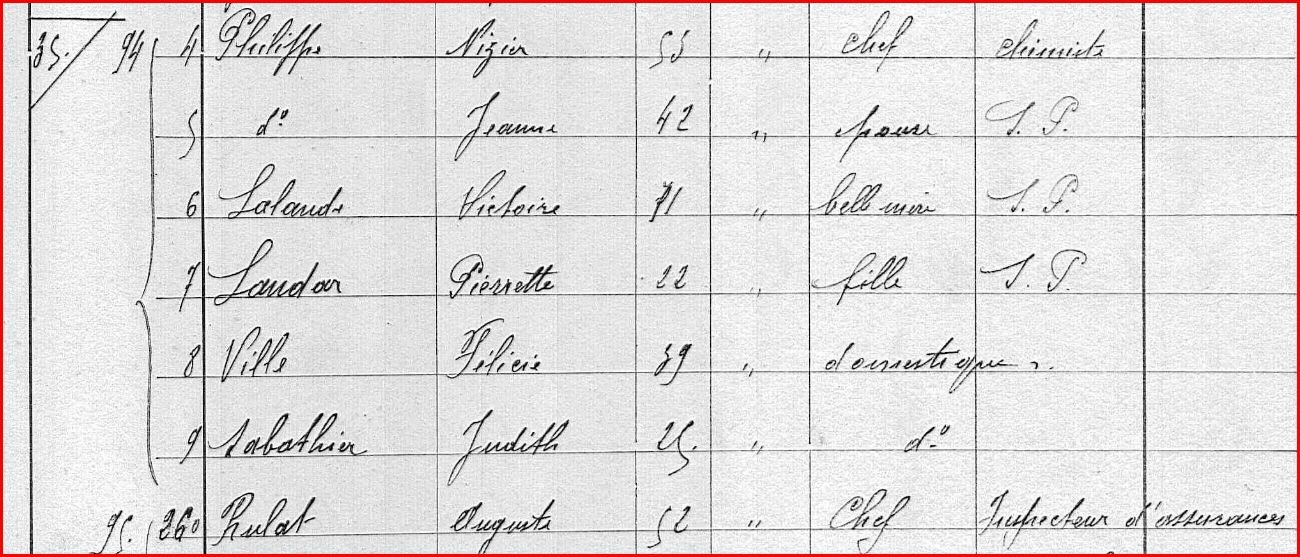 35. 94 4 Philippe Nizier 55 " chef chimiste
5 d° Jeanne 42 " épouse S. P.
6 Lalande Victoire 71 " belle mère S. P.
7 Landar Pierrette 22 " fille S. P.
8 Ville Félicie 39 " domestique
9 Sabathier Judith 25. " d°
95. 260 Rulat Auguste 52 " Chef Inspecteur d'assurances